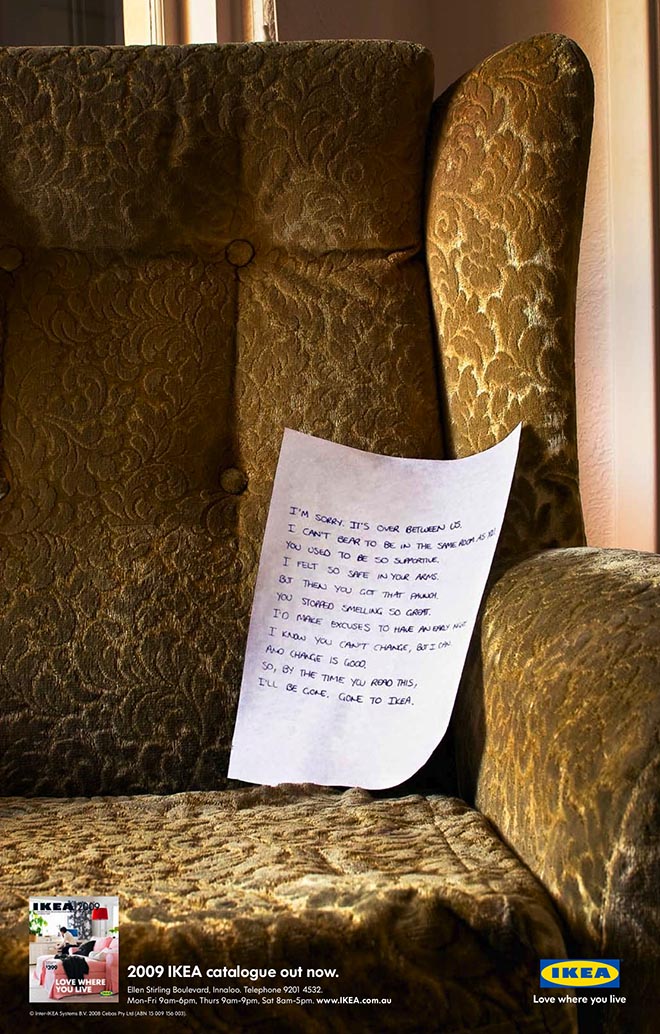 I'M SORRY. IT'S OVER BETWEEN US.
I CAN'T BEAR TO BE IN THE SAME ROOM AS YOU
YOU USED TO BE SO SUPPORTIVE.
I FELT SO SAFE IN YOUR ARMS.
BUT THEN YOU GOT THAT PAUNCH.
YOU STOPPED SMELLING SO GREAT.
I'D MAKE EXCUSES TO HAVE AN EARLY NIGHT
I KNOW YOU CAN'T CHANGE, BUT I CAN
AND CHANGE IS GOOD.
SO, BY THE TIME YOU READ THIS,
I'LL BE GONE. GONE TO IKEA.
IKEA 2009
$399
LOVE WHERE
YOU LIVE
2009 IKEA catalogue out now.
Ellen Stirling Boulevard, Innaloo. Telephone 9201 4532.
Mon-Fri 9am-6pm, Thurs 9am-9pm, Sat 8am-5pm. www.IKEA.com.au
© Inter-IKEA Systems B.V. 2008 Cebas Pty Ltd (ABN 15 009 156 003).
IKEA
Love where you live